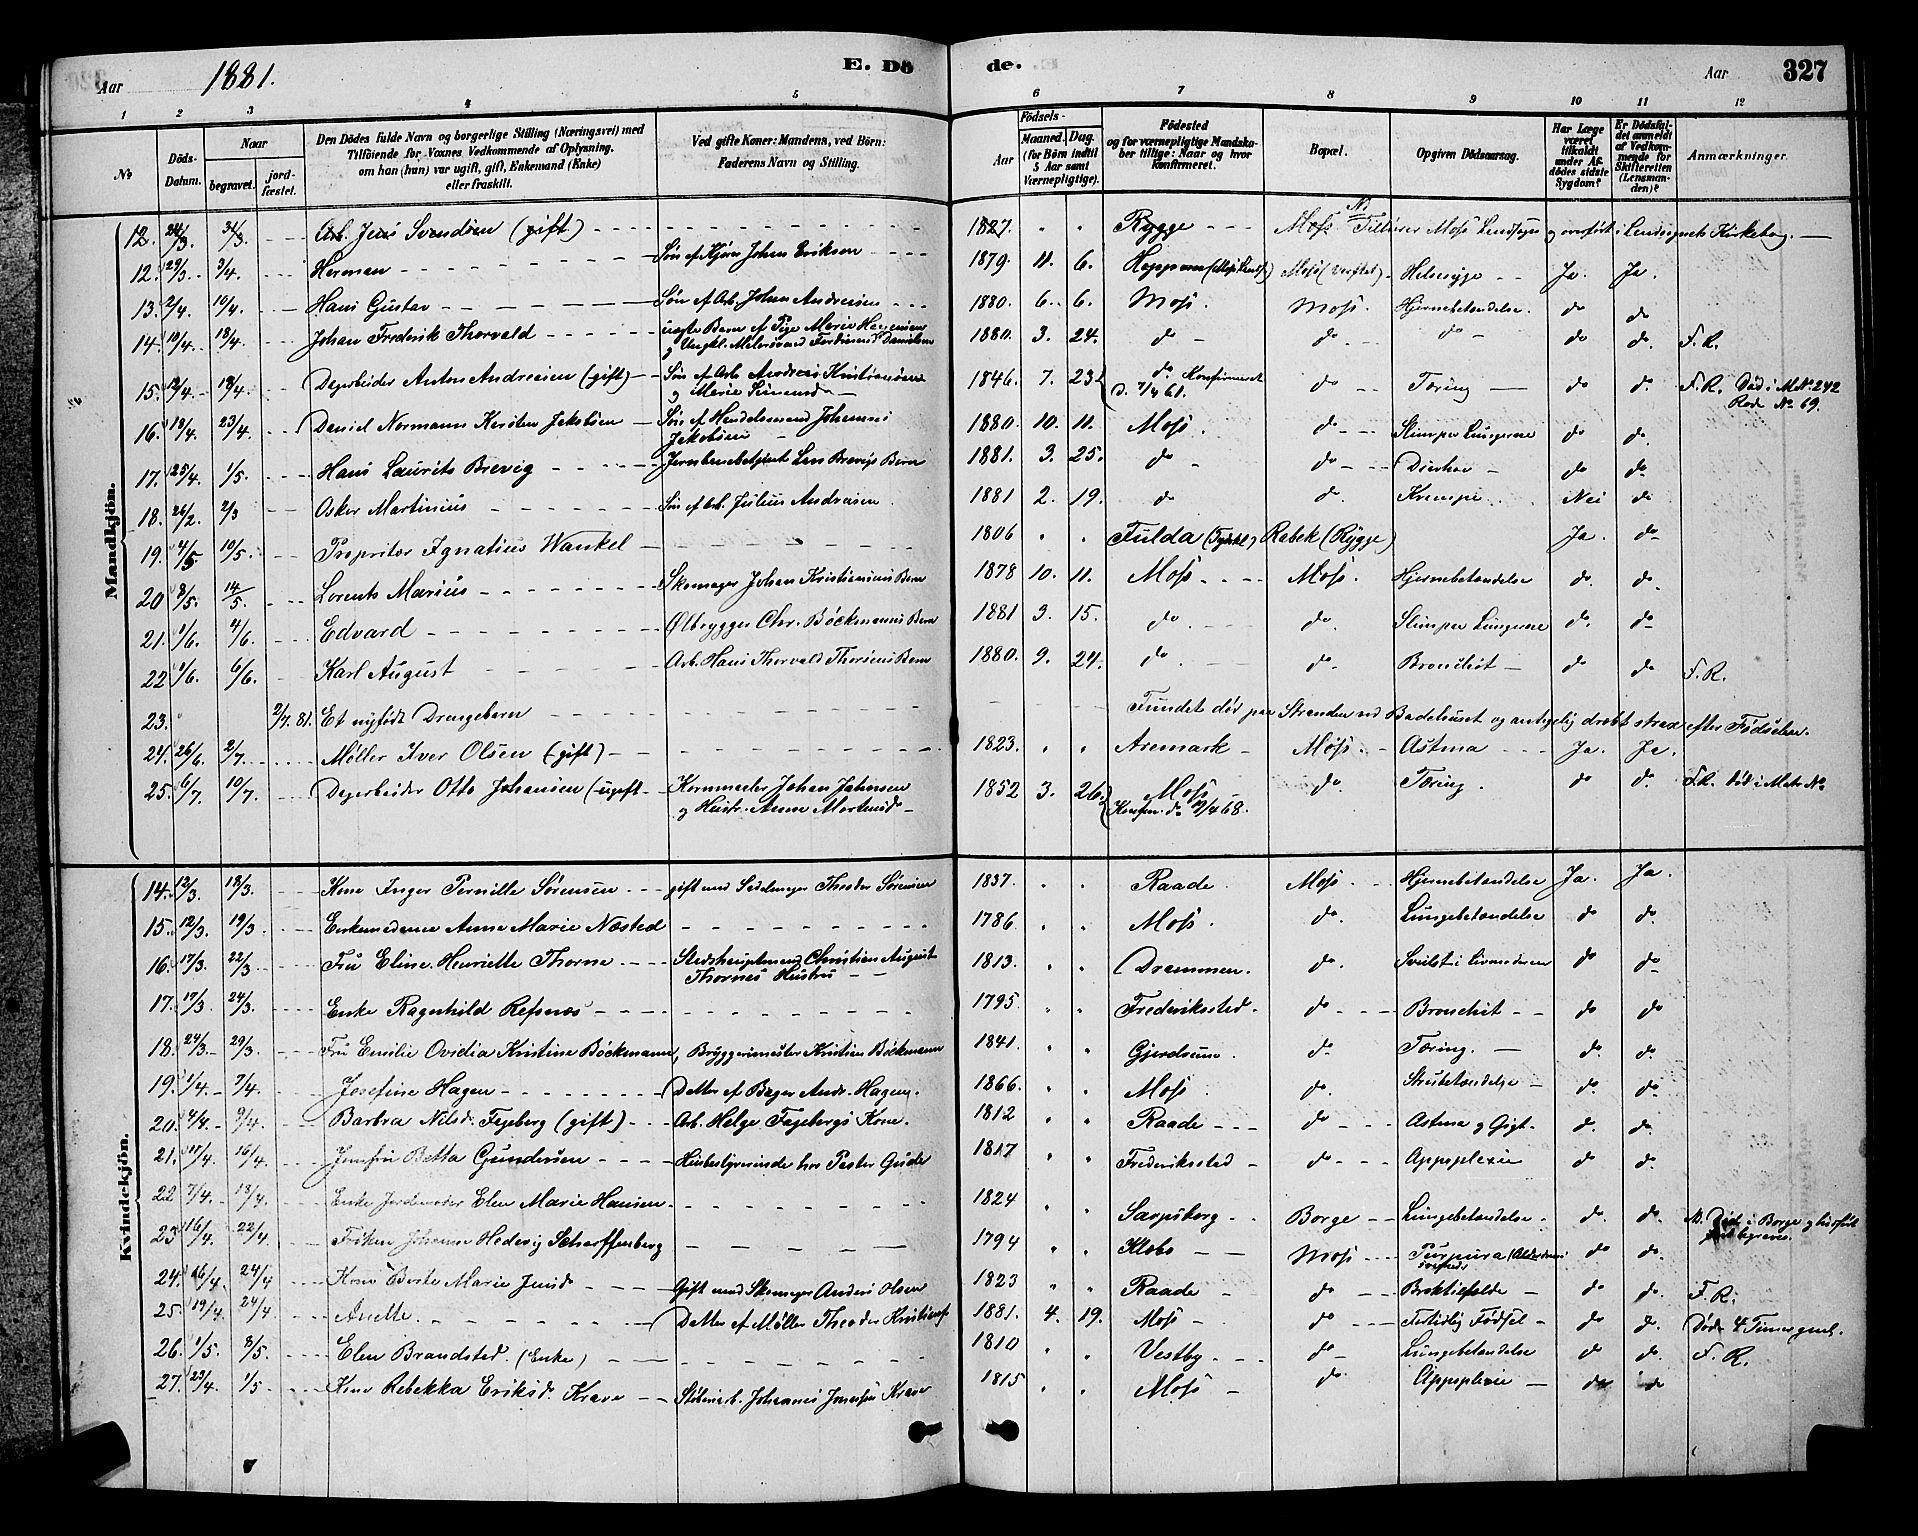 Aar 1881. E. Dö de. Aar 327
1 2 3 4 5 6 7 8 9 10 11 12
No
Döds-Datum.
Naar
begravet. jordfæstet.
Den Dödes fulde Navn og borgerlige Stilling (Næringsvei) med
Tilföiende for Voxnes Vedkommende af Oplysning.
om han (hun) var ugift, gift, Enkemand (Enke)
eller fraskilt.
Ved gifte Koner: Mandens, ved Börn:
Faderens Navn og Stilling.
Födsels-
Aar
Maaned. Dag.
(for Börn indtil
5 Aar samt
Værnepligtige).
Födested
og for værnepligtige Mandskaber tillige: Naar og hvor
konfirmeret.
Bopæl.
Opgiven Dödsaarsag.
Har Læge
været
tilkaldt
under Afdödes sidste
Sygdom?
Er Dödsfaldet anmeldt
af Vedkommende for
Skifteretten
(Lensmanden)?
Anmærkninger.
Mandkjön.
12. 24/3. 31/3. Arb. Jens Svendsen (gift) 1827. " " Rygge Moss Tilhører Moss Landsogn og overført i Landsognets Kirkebog.
12. 29/3 3/4. Herman Søn af Johan Erikson 1879 11. 6. Moss (Verftet) Halssyge Ja. Ja.
13. 2/4. 10/4. Hans Gustav Søn af Arb. Johan Andreasen 1880. 6. 6. Moss. Moss. Hjernebetændelse. do do
14. 10/4. 18/4. Johan Fredrik Thorvald uægte Barn af Pige Marie
og Ungkl. Ferdinand Danielsen 1880. 3. 24. do do do do do. F. R.
15. 12/4. 18/4. Dagarbeider Anton Andreasen (gift) Søn af Arb. Andreas Kristiansen
og Marie 1846. 7. 23. do. Konfirmeret
D. 7/4 61. do Tæring do do. F. R. Død i M. No. 242
Rode No 69.
16. 18/4. 23/4. Daniel Normann Karsten Jakobsen Søn af Handelsmand Johannes
Jakobsen 1880. 10. 11. Moss. do Slim paa Lungerne do do.
17. 25/4. 1/5. Hans Laurits Brevig Jernbanebetjent Brevigs Barn 1881. 3. 25. do do Diarhoe do do
18. 26/2. 2/3 Oskar Martinius Søn af Arb. Julius Andreasen 1881 2. 19. do do. Krampe. Nei do
19. 4/5. 10/5. Propritær Ignatius Wankel 1806 " " Fulda Rabek (Rygge) Ja. do
20 8/5. 14/5. Lorents Marius Skomager Johan Kristiansens Barn 1878 10. 11. Moss. Moss. Hjernebetændelse do. do
21. 1/6. 4/6. Edvard Ølbrygger Chr. Böckmanns Barn 1881 3. 15. do. do. Slim paa Lungerne do. do
22 1/6. 6/6. Karl August Arb. Hans Thorvald Thorsens Barn 1880. 9. 24. do. do. Bronchit do do F. R.
23. 2/7. 81. Et nyfødt Drengebarn Fundet død paa Stranden ved Badehuset og antagelig dræbt strax efter Fødselen.
24. 26/6. 2/7. Møller Iver Olsen (gift) 1823. " " Aremark Moss. Astma Ja. Ja.
25. 6/7. 10/7. Dagarbeider Otto Johansen (ugift Johan Johnsen
og Hustr. Anne 1852 3. 26. Moss
Konfirm. do /4 68. do. Tæring. do do. F. R. Død i No
Kvindekjön.
14. 12/3. 18/3. Kone Inger Pernille Sørensen gift med Sadelmager Theodor Sørensen 1837. " " Raade. Moss. Hjernebetændelse Ja. Ja.
15. 12/3. 19/3. Enkemadame Anne Marie Næsted 1786 " " Moss. do. Lungebetændelse do do.
16. 17/3. 22/3. Fru Eline Henriette Thorne Stadshauptmand Christian August
Thornes Hustru 1813. " " Drammen. do. Svulst i do do
17. 19/3. 24/3. Enke Ragnhild Refsnæs 1795 " " Frederiksstad. do Bronchit do do
18. 24/3. 29/3. Fru Emilie Ovidia Kristine Böckmann, Bryggerimester Kristian Böckmann 1841. " " Gjerdrum. do Tæring. do do.
19. 1/4. 7/4. Josefine Hagen Datter af Bager Andr. Hagen. 1866. " " Moss. do. Strubetændelse do. do.
20. 4/4. 9/4. Barbra Nilsd. Fageberg (gift) Arb. Helge Fagebergs Kone. 1812 " " Raade do Astma og Gigt. do. do.
21. 11/4. 16/4. Jomfru Betta Gundersen Husbestyrerinde hos Pastor Gude 1817 " " Frederiksstad do Apoplexie do do.
22 7/4. 18/4. Enke Jordemoder Elen Marie Hansen. 1824 " " Sarpsborg Borge Lungebetændelse. do. do. Død i Borge og hidført
begraves.
23 16/4. 22/4. Frøken Johanne Hedevig Scharffenberg 1794 " " Klæbo Moss Purpura do do.
24. 16/4. 24/4 Kone Berte Marie Gift med Skomager Anders Olsen 1823 " " Raade do do do F. R.
25. 19/4. 24/4 Anette Datter af Møller Theodor 1881. 4. 19. Moss do Fortidlig Födsel do do. Død 4 Timer gml.
26. 1/5. 8/5. Elen Brandstad. (Enke) 1810 " " Vestby. do Lungebetændelse do do. F. R.
27. 23/4. 1/5 Kone Rebekka Eriksd. Krave Johannes Krave 1815 " " Moss do Apoplexie do do